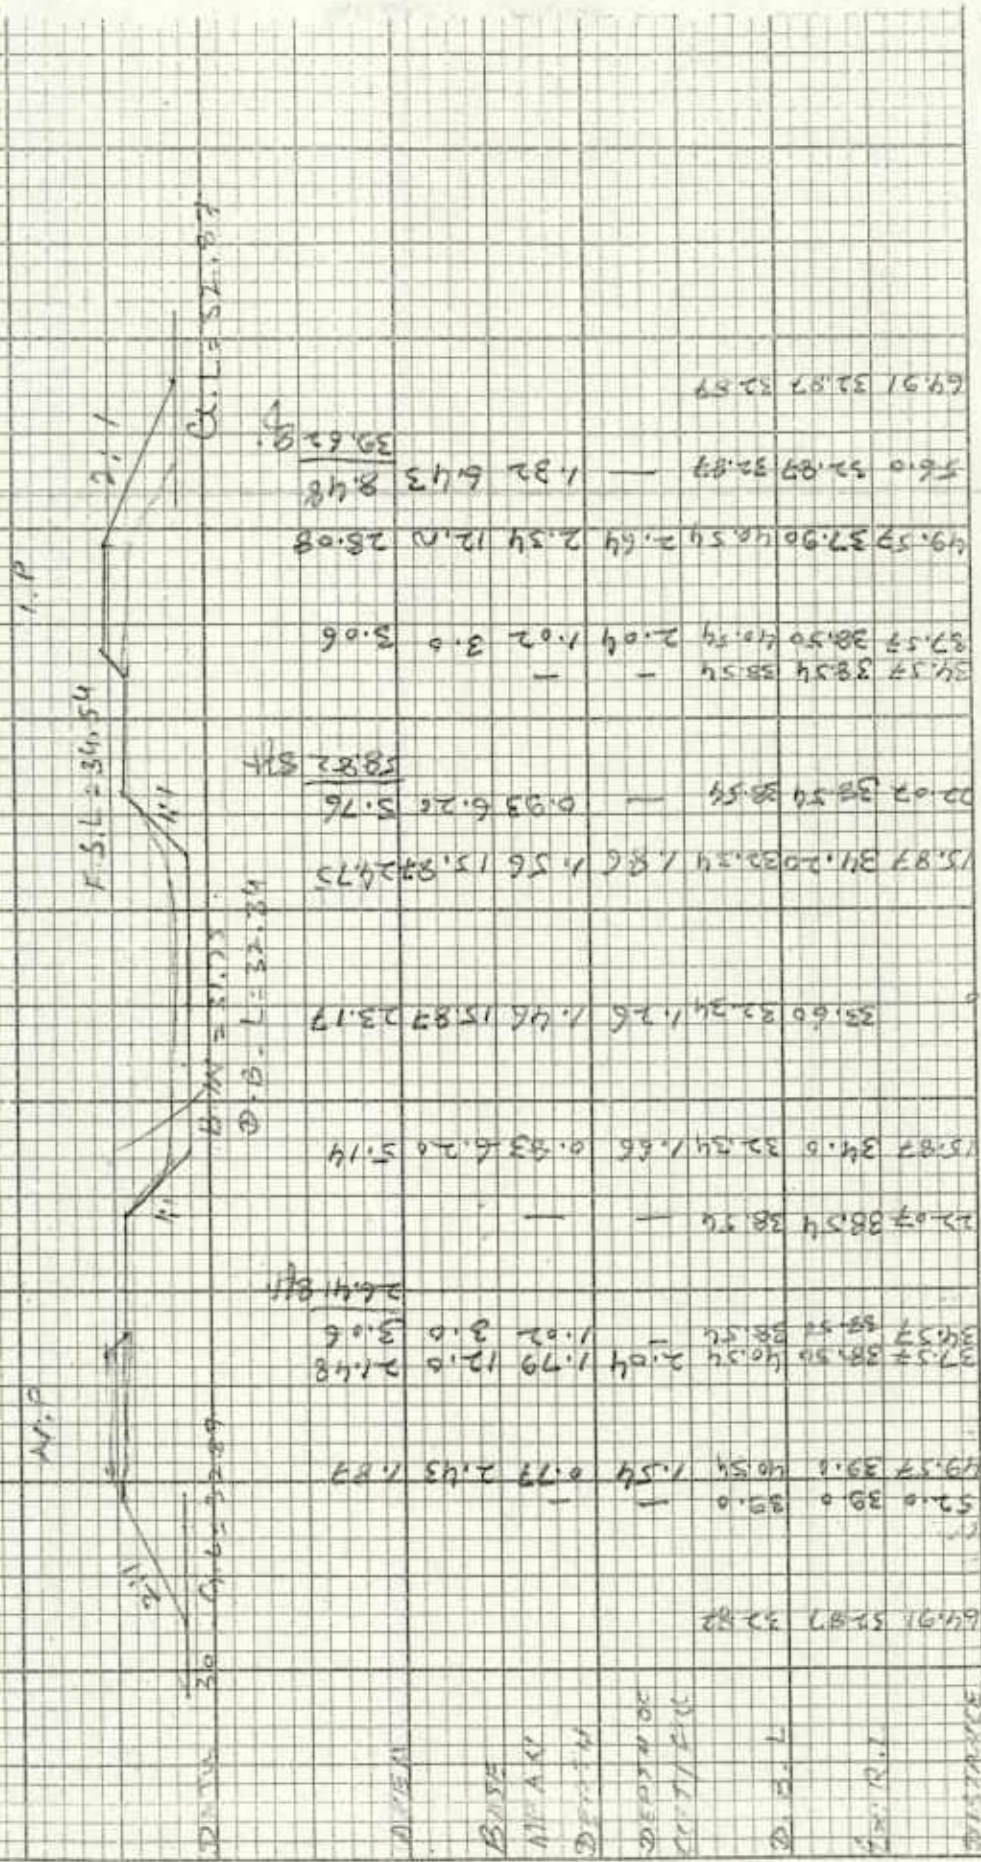 N.P
I.P
F.S.L = 34.54
2:1
1:1
1:1
2:1
DATUM 30
G.L = 32.87
B.W = 31.75
D.B.L = 32.34
G.L = 32.87
AREA
BASE
MEAN
DEPTH
DEPTH OF
CUT/FILL
D.S.L
Ex: R.L
DISTANCE
64.91 32.87 32.87
52.0 39.0 39.0 — —
49.57 39.0 40.54 1.54 0.77 2.43 1.87
37.57 38.50 40.54 2.04 1.79 12.0 21.48
34.57 38.54 — 1.02 3.0 3.06
26.41
22.07 38.54 38.54 — —
15.87 34.0 32.34 1.66 0.83 6.20 5.14
0 33.60 32.34 1.26 1.46 15.87 23.17
15.87 34.20 32.34 1.86 1.56 15.87 24.75
22.07 38.54 38.54 — 0.93 6.20 5.76
58.82
34.57 38.54 38.54 — —
37.57 38.50 40.54 2.04 1.02 3.0 3.06
49.57 37.90 40.54 2.64 2.34 12.0 28.08
56.0 32.87 32.87 — 1.32 6.43 8.48
39.62
64.91 32.87 32.87